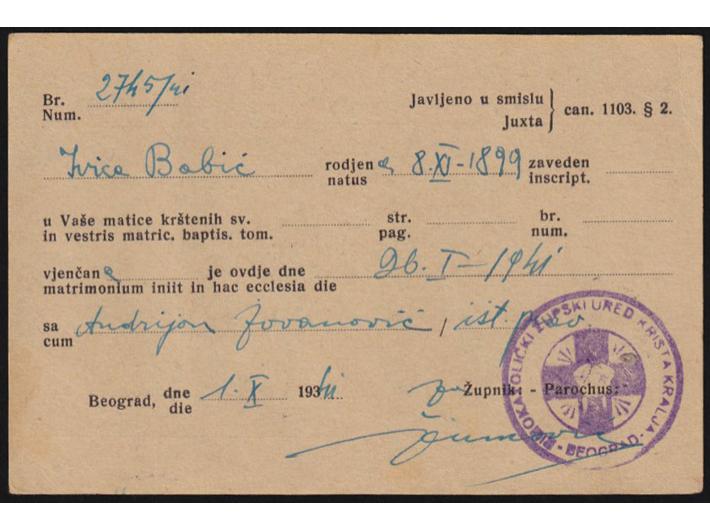 Br.
Num. 2745/41
Javljeno u smislu
Juxta } can. 1103. § 2.
Ivica Babić rodjena 8.XI-1899 zaveden
natus inscript.
u Vaše matice krštenih sv. str. br.
in vestris matric. baptis. tom. pag. num.
vjenčana je ovdje dne 26. I - 1941
matrimonium iniit in hac ecclesia die
sa Andrijom Jovanović, ist. prav
cum
Beograd, dne 1. X 1941
die
za Župnik - Parochus:
RIMOKATOLIČKI ŽUPSKI URED KRISTA KRALJA - BEOGRAD -